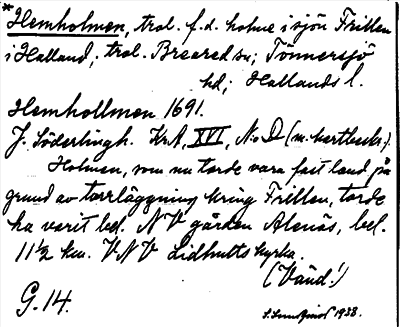 *Hemholmen, trol. f.d. holme i sjön Frillen
i Halland; trol. Breared sn; Tönnersjö
hd; Hallands l.
Hemhollmen 1691.
J. Söderlingh. KrA, XVI, No D (m. kartbeskr.).
Holmen, som nu torde vara fast land på
grund av torrläggning kring Frillen, torde
ha varit bel. NV gården Alenäs, bel.
11½ km. VNV Lidhults kyrka.
(Vänd!)
G. 14.
1938.